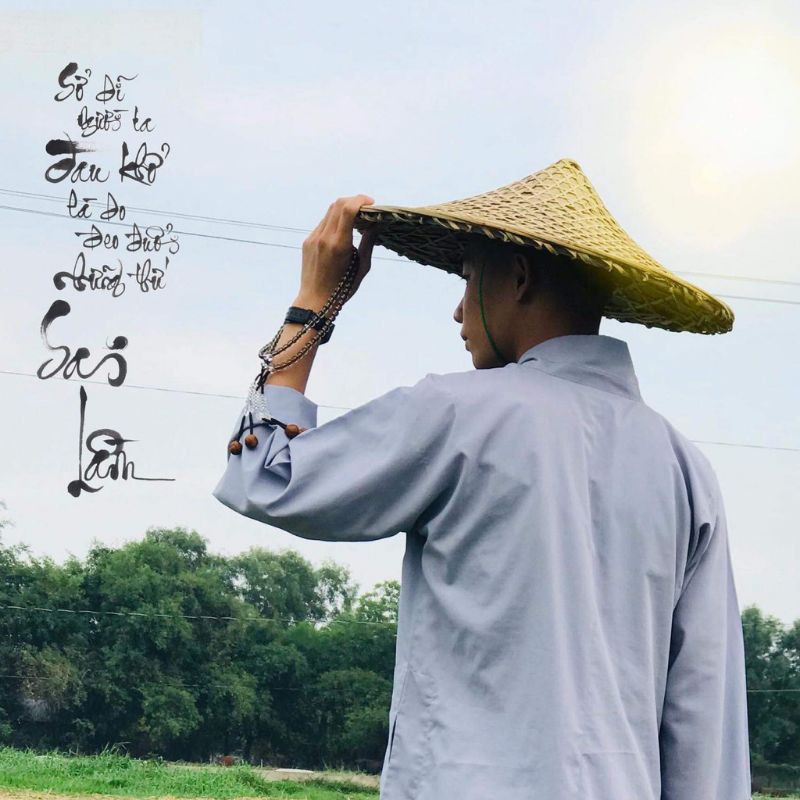 Sở dĩ
người ta
đau khổ
là do
đeo đuổi
những thứ
Sai
Lầm